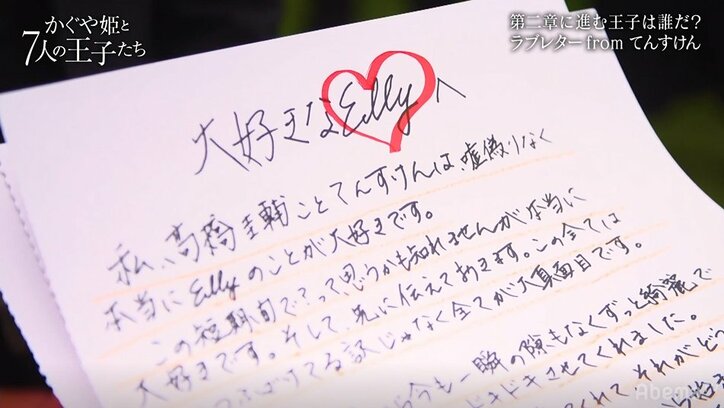 かぐや姫と
7人の王子たち
第二章に進む王子は誰だ?
ラブレターfrom てんすけん
大好きなEllyへ
私、高橋圭輔ことてんすけんは、嘘偽りなく
本当にEllyのことが大好きです。
この短期間で?って思うかも知れませんが本当に
大好きです。そして、先に伝えておきます。この全ては
ふざけてる訳じゃなく全てが大真面目です。
今も一瞬の隙もなくずっと綺麗で
ドキドキさせてくれました。
くれて それがどう
Abema